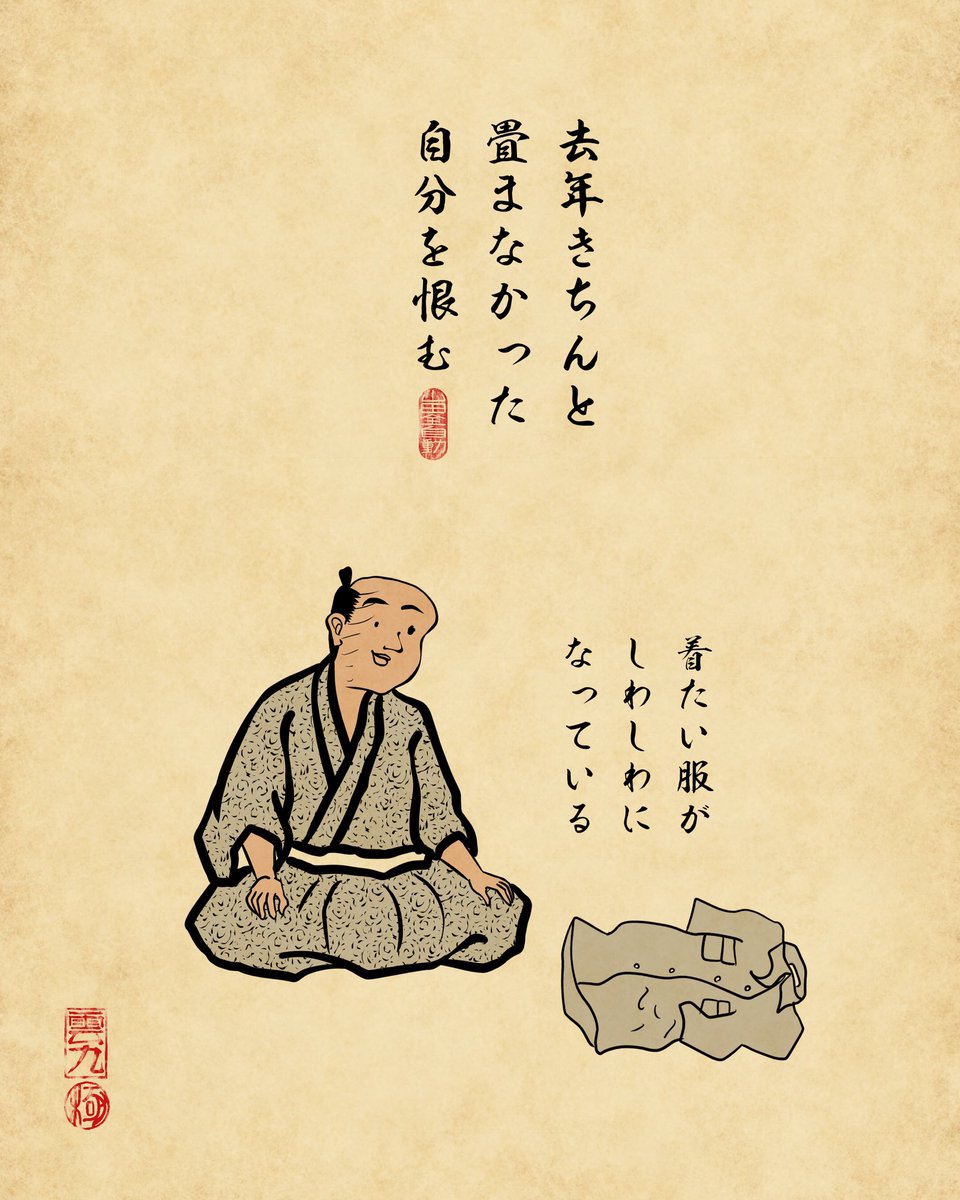 去年きちんと
畳まなかった
自分を恨む
着たい服が
しわしわに
なっている